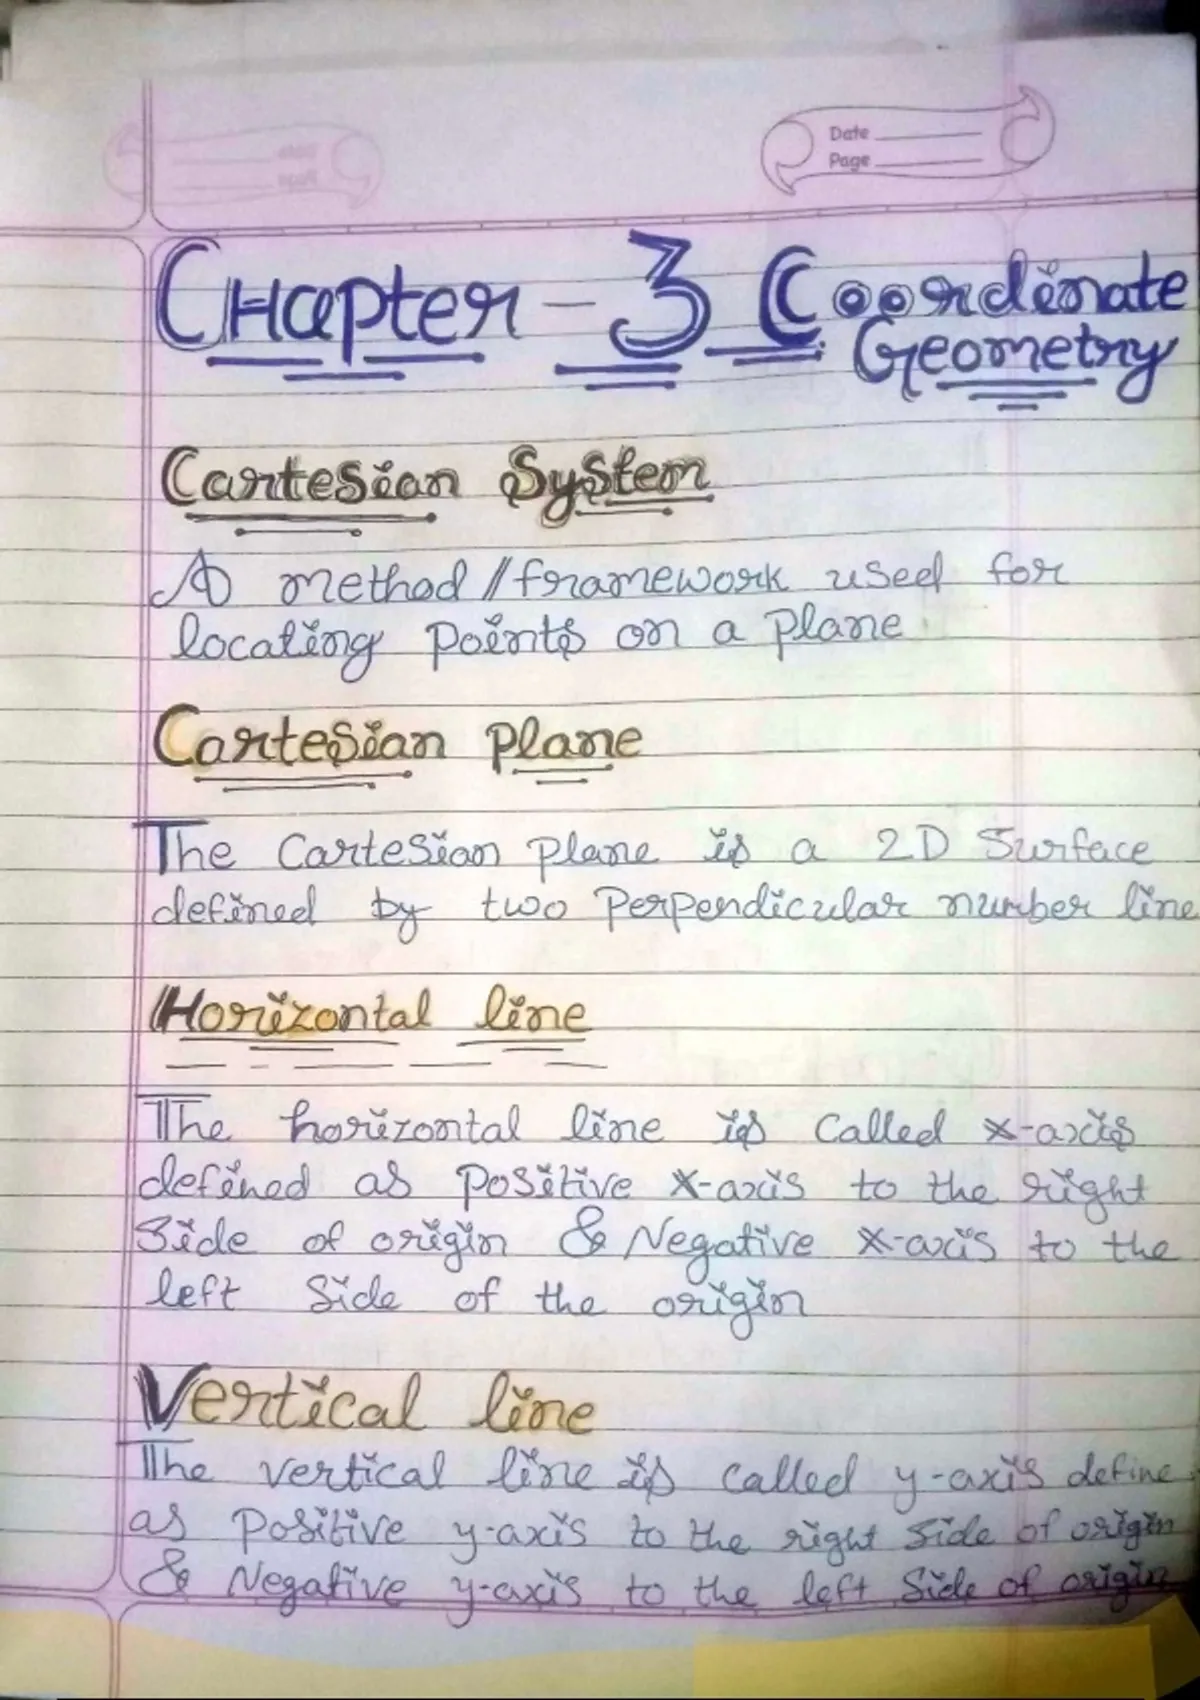 Date
Page
Chapter - 3 Coordinate
Geometry
Cartesian System
A method / framework used for
locating points on a plane
Cartesian plane
The Cartesian plane is a 2D Surface
defined by two perpendicular number line
Horizontal line
The horizontal line is called x-axis
defined as positive x-axis to the right
Side of origin & Negative x-axis to the
left side of the origin
Vertical line
The vertical line is called y-axis define
as positive y-axis to the right side of origin
& Negative y-axis to the left side of origin